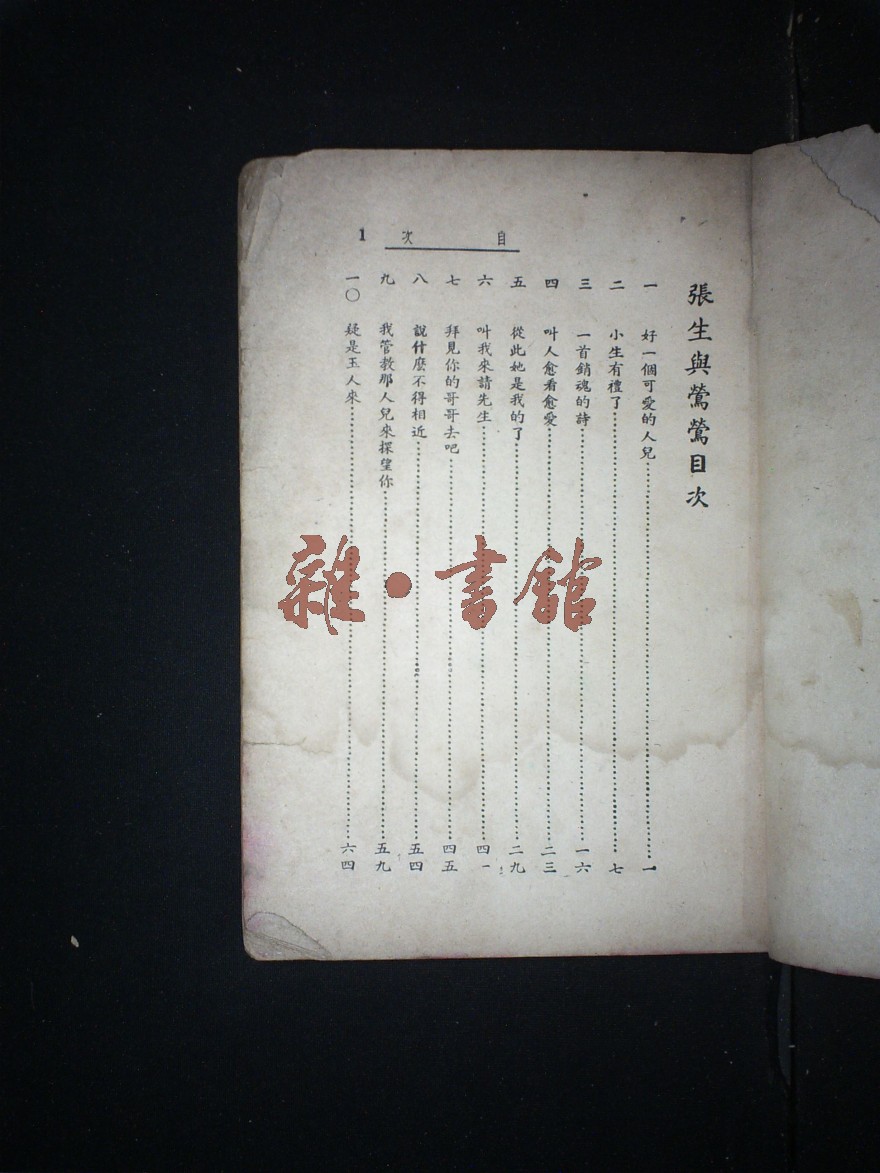 目次 1
張生與鶯鶯目次
一 好一個可愛的人兒……一
二 小生有禮了……七
三 一首銷魂的詩……一六
四 叫人愈看愈愛……二三
五 從此她是我的了……二九
六 叫我來請先生……四一
七 拜見你的哥哥去吧……四五
八 說什麼不得相近……五四
九 我管教那人兒來探望你……五九
一〇 疑是玉人來……六四
雜·書館